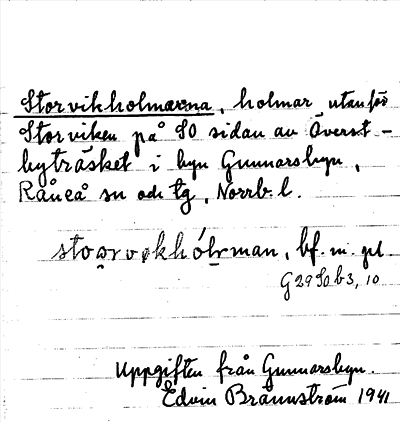 Storvikholmarna, holmar utanför
Storviken på SO sidan av Överst-
byträsket i byn Gunnarsbyn,
Råneå sn och tg, Norrb. l.
bf. m. pl
G 29 SO b 3, 10
Uppgiften från Gunnarsbyn.
Edvin Brännström 1941